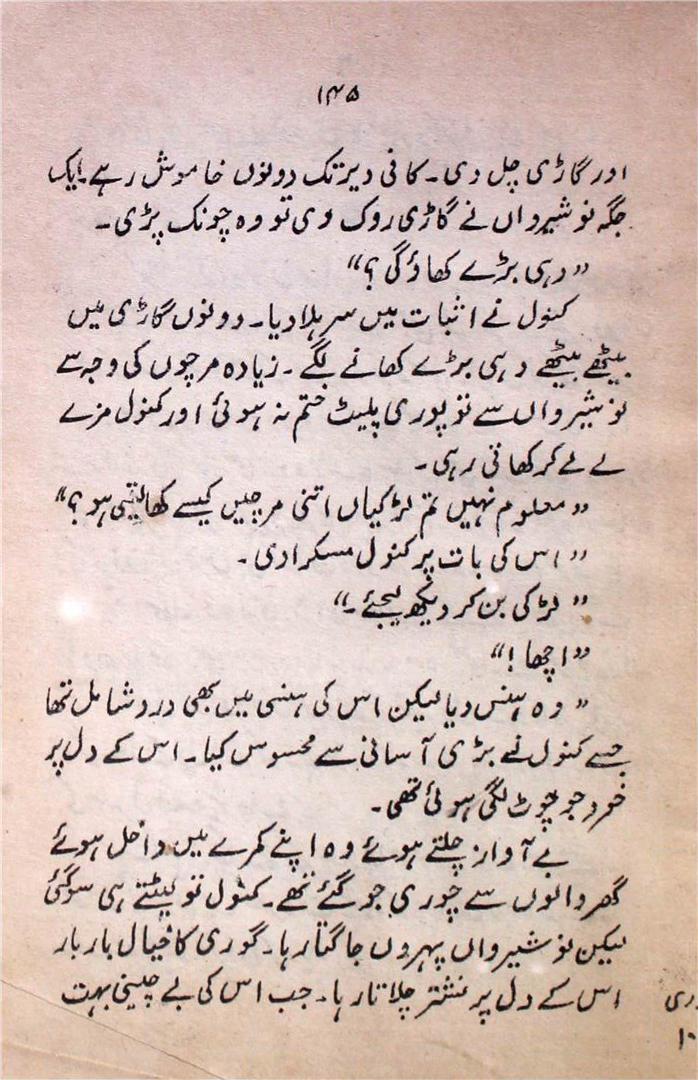 ۱۴۵
اور گاڑی چل دی۔ کافی دیر تک دونوں خاموش رہے۔ ایک
جگہ نوشیرواں نے گاڑی روک دی تو وہ چونک پڑی۔
”دہی بڑے کھاؤ گی؟“
کنول نے اثبات میں سر ہلا دیا۔ دونوں گاڑی میں
بیٹھے بیٹھے دہی بڑے کھانے لگے۔ زیادہ مرچوں کی وجہ سے
نوشیرواں سے تو پوری پلیٹ ختم نہ ہوئی اور کنول مزے
لے لے کر کھاتی رہی۔
”معلوم نہیں تم لڑکیاں اتنی مرچیں کیسے کھا لیتی ہو؟“
”اس کی بات پر کنول مسکرا دی۔
”لڑکی بن کر دیکھ لیجئے۔“
”اچھا!“
”وہ ہنس دیا لیکن اس کی ہنسی میں بھی درد شامل تھا
جسے کنول نے بڑی آسانی سے محسوس کیا۔ اس کے دل پر
خود جو چوٹ لگی ہوئی تھی۔
بے آواز چلتے ہوئے وہ اپنے کمرے میں داخل ہوئے
گھر والوں سے چوری جو گئے تھے۔ کنول تو لیٹتے ہی سو گئی
لیکن نوشیرواں پہروں جاگتا رہا۔ گوری کا خیال بار بار
اس کے دل پر نشتر چلاتا رہا۔ جب اس کی بے چینی بہت